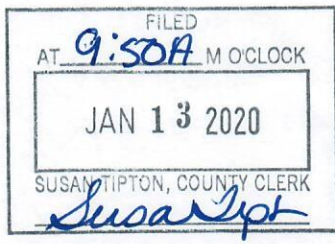 FILED
AT 9:50A M O'CLOCK
JAN 13 2020
SUSAN TIPTON, COUNTY CLERK
Susan Tipt